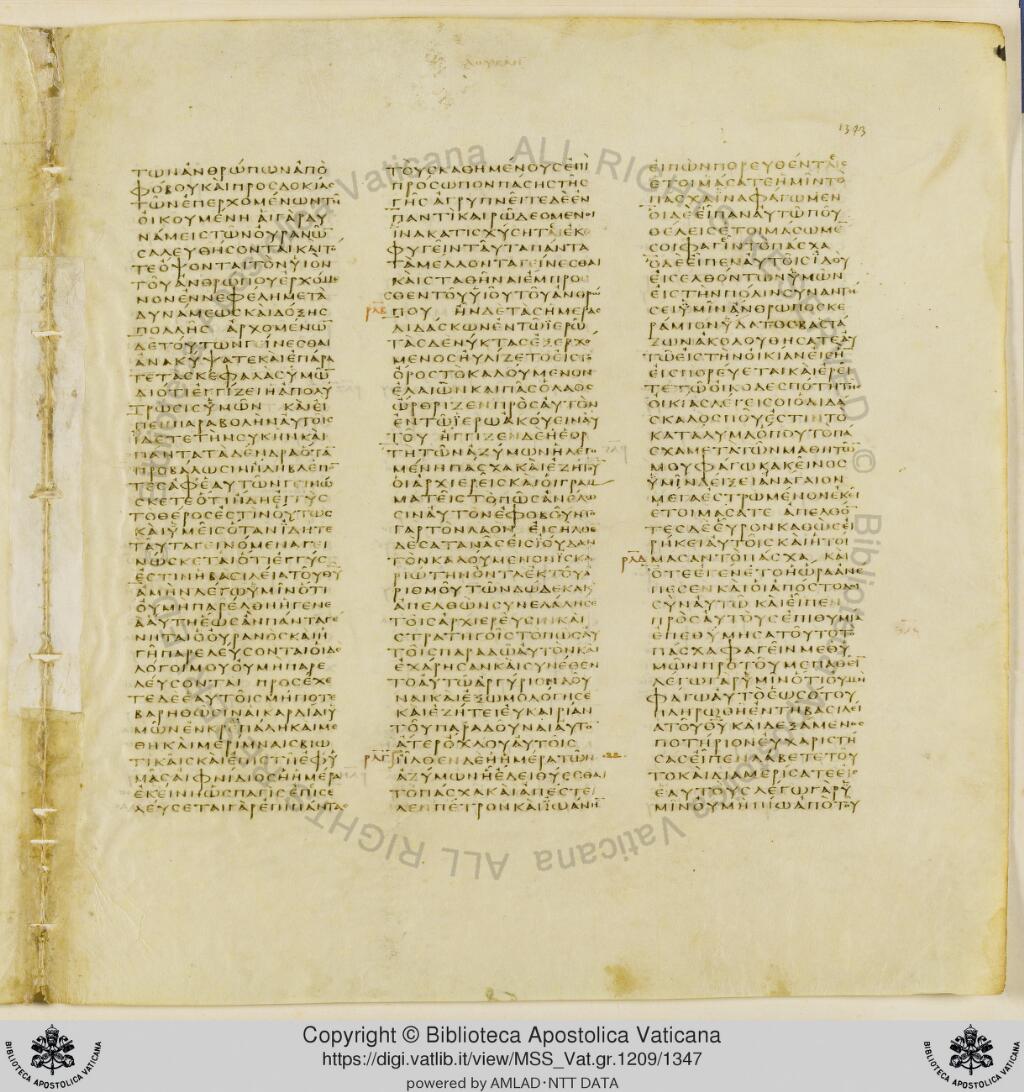 1343
ΤΩΝΑΝΘΡΩΠΩΝΑΠΟ
ΦΟΒΟΥΚΑΙΠΡΟΣΔΟΚΙΑΣ
ΤΩΝΕΠΕΡΧΟΜΕΝΩΝΤΗ
ΟΙΚΟΥΜΕΝΗΑΙΓΑΡΔΥ
ΝΑΜΕΙΣΤΩΝΟΥΡΑΝΩ̅
ΣΑΛΕΥΘΗΣΟΝΤΑΙΚΑΙΤΟ
ΤΕΟΨΟΝΤΑΙΤΟΝΥΙΟΝ
ΤΟΥΑΝΘΡΩΠΟΥΕΡΧΟΜΕ
ΝΟΝΕΝΝΕΦΕΛΗΜΕΤΑ
ΔΥΝΑΜΕΩΣΚΑΙΔΟΞΗΣ
ΠΟΛΛΗΣ ΑΡΧΟΜΕΝΩ̅
ΔΕΤΟΥΤΩΝΓΕΙΝΕΣΘΑΙ
ΑΝΑΚΥΨΑΤΕΚΑΙΕΠΑΡΑ
ΤΕΤΑΣΚΕΦΑΛΑΣΥΜΩ̅
ΔΙΟΤΙΕΓΓΙΖΕΙΗΑΠΟΛΥ
ΤΡΩΣΙΣΥΜΩΝ ΚΑΙΕΙ
ΠΕΝΠΑΡΑΒΟΛΗΝΑΥΤΟΙΣ
ΙΔΕΤΕΤΗΝΣΥΚΗΝΚΑΙ
ΠΑΝΤΑΤΑΔΕΝΔΡΑΟΤΑ̅
ΠΡΟΒΑΛΩΣΙΝΗΔΗΒΛΕΠΟ̅
ΤΕΣΑΦΕΑΥΤΩΝΓΕΙΝΩ
ΣΚΕΤΕΟΤΙΗΔΗΕΓΓΥΣ
ΤΟΘΕΡΟΣΕΣΤΙΝΟΥΤΩΣ
ΚΑΙΥΜΕΙΣΟΤΑΝΙΔΗΤΕ
ΤΑΥΤΑΓΕΙΝΟΜΕΝΑΓΕΙ
ΝΩΣΚΕΤΑΙΟΤΙΕΓΓΥΣ
ΕΣΤΙΝΗΒΑΣΙΛΕΙΑΤΟΥΘ̅Υ̅
ΑΜΗΝΛΕΓΩΥΜΙΝΟΤΙ
ΟΥΜΗΠΑΡΕΛΘΗΗΓΕΝΕ
ΑΑΥΤΗΕΩΣΑΝΠΑΝΤΑΓΕ
ΝΗΤΑΙΟΟΥΡΑΝΟΣΚΑΙΗ
ΓΗΠΑΡΕΛΕΥΣΟΝΤΑΙΟΙΔΕ
ΛΟΓΟΙΜΟΥΟΥΜΗΠΑΡΕ
ΛΕΥΣΟΝΤΑΙ ΠΡΟΣΕΧΕ
ΤΕΔΕΕΑΥΤΟΙΣΜΗΠΟΤΕ
ΒΑΡΗΘΩΣΙΝΑΙΚΑΡΔΙΑΙΥ
ΜΩΝΕΝΚΡΕΠΑΛΗΚΑΙΜΕ
ΘΗΚΑΙΜΕΡΙΜΝΑΙΣΒΙΩ
ΤΙΚΑΙΣΚΑΙΕΠΙΣΤΗΕΦΥ
ΜΑΣΑΙΦΝΙΔΙΟΣΗΗΜΕΡΑ
ΕΚΕΙΝΗΩΣΠΑΓΙΣΕΠΙΣΕ
ΛΕΥΣΕΤΑΙΓΑΡΕΠΙΠΑΝΤΑΣ
ΤΟΥΣΚΑΘΗΜΕΝΟΥΣΕΠΙ
ΠΡΟΣΩΠΟΝΠΑΣΗΣΤΗΣ
ΓΗΣΑΓΡΥΠΝΕΙΤΕΔΕΕΝ
ΠΑΝΤΙΚΑΙΡΩΔΕΟΜΕΝΟΙ
ΙΝΑΚΑΤΙΣΧΥΣΗΤΑΙΕΚ
ΦΥΓΕΙΝΤΑΥΤΑΠΑΝΤΑ
ΤΑΜΕΛΛΟΝΤΑΓΕΙΝΕΣΘΑΙ
ΚΑΙΣΤΑΘΗΝΑΙΕΜΠΡΟ
ΣΘΕΝΤΟΥΥΙΟΥΤΟΥΑΝΘΡΩ
ΡΛΒ ΠΟΥ ΗΝΔΕΤΑΣΗΜΕΡΑΣ
ΔΙΔΑΣΚΩΝΕΝΤΩΙΕΡΩ
ΤΑΣΔΕΝΥΚΤΑΣΕΞΕΡΧΟ
ΜΕΝΟΣΗΥΛΙΖΕΤΟΕΙΣΤΟ
ΟΡΟΣΤΟΚΑΛΟΥΜΕΝΟΝ
ΕΛΑΙΩΝΚΑΙΠΑΣΟΛΑΟΣ
ΩΡΘΡΙΖΕΝΠΡΟΣΑΥΤΟΝ
ΕΝΤΩΙΕΡΩΑΚΟΥΕΙΝΑΥ
ΤΟΥ ΗΓΓΙΖΕΝΔΕΗΕΟΡ
ΤΗΤΩΝΑΖΥΜΩΝΗΛΕΓΟ
ΜΕΝΗΠΑΣΧΑΚΑΙΕΖΗΤΟΥ̅
ΟΙΑΡΧΙΕΡΕΙΣΚΑΙΟΙΓΡΑΜ
ΜΑΤΕΙΣΤΟΠΩΣΑΝΕΛΩ
ΣΙΝΑΥΤΟΝΕΦΟΒΟΥΝΤΟ
ΓΑΡΤΟΝΛΑΟΝ ΕΙΣΗΛΘΕ
ΔΕΣΑΤΑΝΑΣΕΙΣΙΟΥΔΑΝ
ΤΟΝΚΑΛΟΥΜΕΝΟΝΙΣΚΑ
ΡΙΩΤΗΝΟΝΤΑΕΚΤΟΥΑ
ΡΙΘΜΟΥΤΩΝΔΩΔΕΚΑΚΑΙ
ΑΠΕΛΘΩΝΣΥΝΕΛΑΛΗΣΕ
ΤΟΙΣΑΡΧΙΕΡΕΥΣΙΝΚΑΙ
ΣΤΡΑΤΗΓΟΙΣΤΟΠΩΣΑΥ
ΤΟΙΣΠΑΡΑΔΩΑΥΤΟΝΚΑΙ
ΕΧΑΡΗΣΑΝΚΑΙΣΥΝΕΘΕΝ
ΤΟΑΥΤΩΑΡΓΥΡΙΟΝΔΟΥ
ΝΑΙΚΑΙΕΞΩΜΟΛΟΓΗΣΕ
ΚΑΙΕΖΗΤΕΙΕΥΚΑΙΡΙΑΝ
ΤΟΥΠΑΡΑΔΟΥΝΑΙΑΥΤΟ̅
ΑΤΕΡΟΧΛΟΥΑΥΤΟΙΣ
ΡΛΓ ΗΛΘΕΝΔΕΗΗΜΕΡΑΤΩΝ
ΑΖΥΜΩΝΗΕΔΕΙΘΥΕΣΘΑΙ
ΤΟΠΑΣΧΑΚΑΙΑΠΕΣΤΕΙ
ΛΕΝΠΕΤΡΟΝΚΑΙΙΩΑΝΗ̅
ΕΙΠΩΝΠΟΡΕΥΘΕΝΤΕΣ
ΕΤΟΙΜΑΣΑΤΕΗΜΙΝΤΟ
ΠΑΣΧΑΙΝΑΦΑΓΩΜΕΝ
ΟΙΔΕΕΙΠΑΝΑΥΤΩΠΟΥ
ΘΕΛΕΙΣΕΤΟΙΜΑΣΩΜΕ̅
ΣΟΙΦΑΓΕΙΝΤΟΠΑΣΧΑ
ΟΔΕΕΙΠΕΝΑΥΤΟΙΣΙΔΟΥ
ΕΙΣΕΛΘΟΝΤΩΝΥΜΩΝ
ΕΙΣΤΗΝΠΟΛΙΝΣΥΝΑΝΤΗ
ΣΕΙΥΜΙΝΑΝΘΡΩΠΟΣΚΕ
ΡΑΜΙΟΝΥΔΑΤΟΣΒΑΣΤΑ
ΖΩΝΑΚΟΛΟΥΘΗΣΑΤΕΑΥ
ΤΩΕΙΣΤΗΝΟΙΚΙΑΝΕΙΣΗ̅
ΕΙΣΠΟΡΕΥΕΤΑΙΚΑΙΕΡΕΙ
ΤΕΤΩΟΙΚΟΔΕΣΠΟΤΗΤΗΣ
ΟΙΚΙΑΣΛΕΓΕΙΣΟΙΟΔΙΔΑ
ΣΚΑΛΟΣΠΟΥΕΣΤΙΝΤΟ
ΚΑΤΑΛΥΜΑΟΠΟΥΤΟΠΑ
ΣΧΑΜΕΤΑΤΩΝΜΑΘΗΤΩ̅
ΜΟΥΦΑΓΩΚΑΚΕΙΝΟΣ
ΥΜΙΝΔΕΙΞΕΙΑΝΑΓΑΙΟΝ
ΜΕΓΑΕΣΤΡΩΜΕΝΟΝΕΚΕΙ
ΕΤΟΙΜΑΣΑΤΕ ΑΠΕΛΘΟ̅
ΤΕΣΔΕΕΥΡΟΝΚΑΘΩΣΕΙ
ΡΗΚΕΙΑΥΤΟΙΣΚΑΙΗΤΟΙ
ΡΛΔ ΜΑΣΑΝΤΟΠΑΣΧΑ ΚΑΙ
ΟΤΕΕΓΕΝΕΤΟΗΩΡΑΑΝΕ
ΠΕΣΕΝΚΑΙΟΙΑΠΟΣΤΟΛΟΙ
ΣΥΝΑΥΤΩ ΚΑΙΕΙΠΕΝ
ΠΡΟΣΑΥΤΟΥΣΕΠΙΘΥΜΙΑ
ΕΠΕΘΥΜΗΣΑΤΟΥΤΟΤΟ
ΠΑΣΧΑΦΑΓΕΙΝΜΕΘΥ
ΜΩΝΠΡΟΤΟΥΜΕΠΑΘΕΙ̅
ΛΕΓΩΓΑΡΥΜΙΝΟΤΙΟΥΜΗ
ΦΑΓΩΑΥΤΟΕΩΣΟΤΟΥ
ΠΛΗΡΩΘΗΕΝΤΗΒΑΣΙΛΕΙ
ΑΤΟΥΘ̅Υ̅ΚΑΙΔΕΞΑΜΕΝΟΣ
ΠΟΤΗΡΙΟΝΕΥΧΑΡΙΣΤΗ
ΣΑΣΕΙΠΕΝΛΑΒΕΤΕΤΟΥ
ΤΟΚΑΙΔΙΑΜΕΡΙΣΑΤΕΕΙΣ
ΕΑΥΤΟΥΣΛΕΓΩΓΑΡΥ
ΜΙΝΟΥΜΗΠΙΩΑΠΟΤΟΥ
Copyright © Biblioteca Apostolica Vaticana
https://digi.vatlib.it/view/MSS_Vat.gr.1209/1347
powered by AMLAD･NTT DATA
BIBLIOTECA APOSTOLICA VATICANA
BIBLIOTECA APOSTOLICA VATICANA